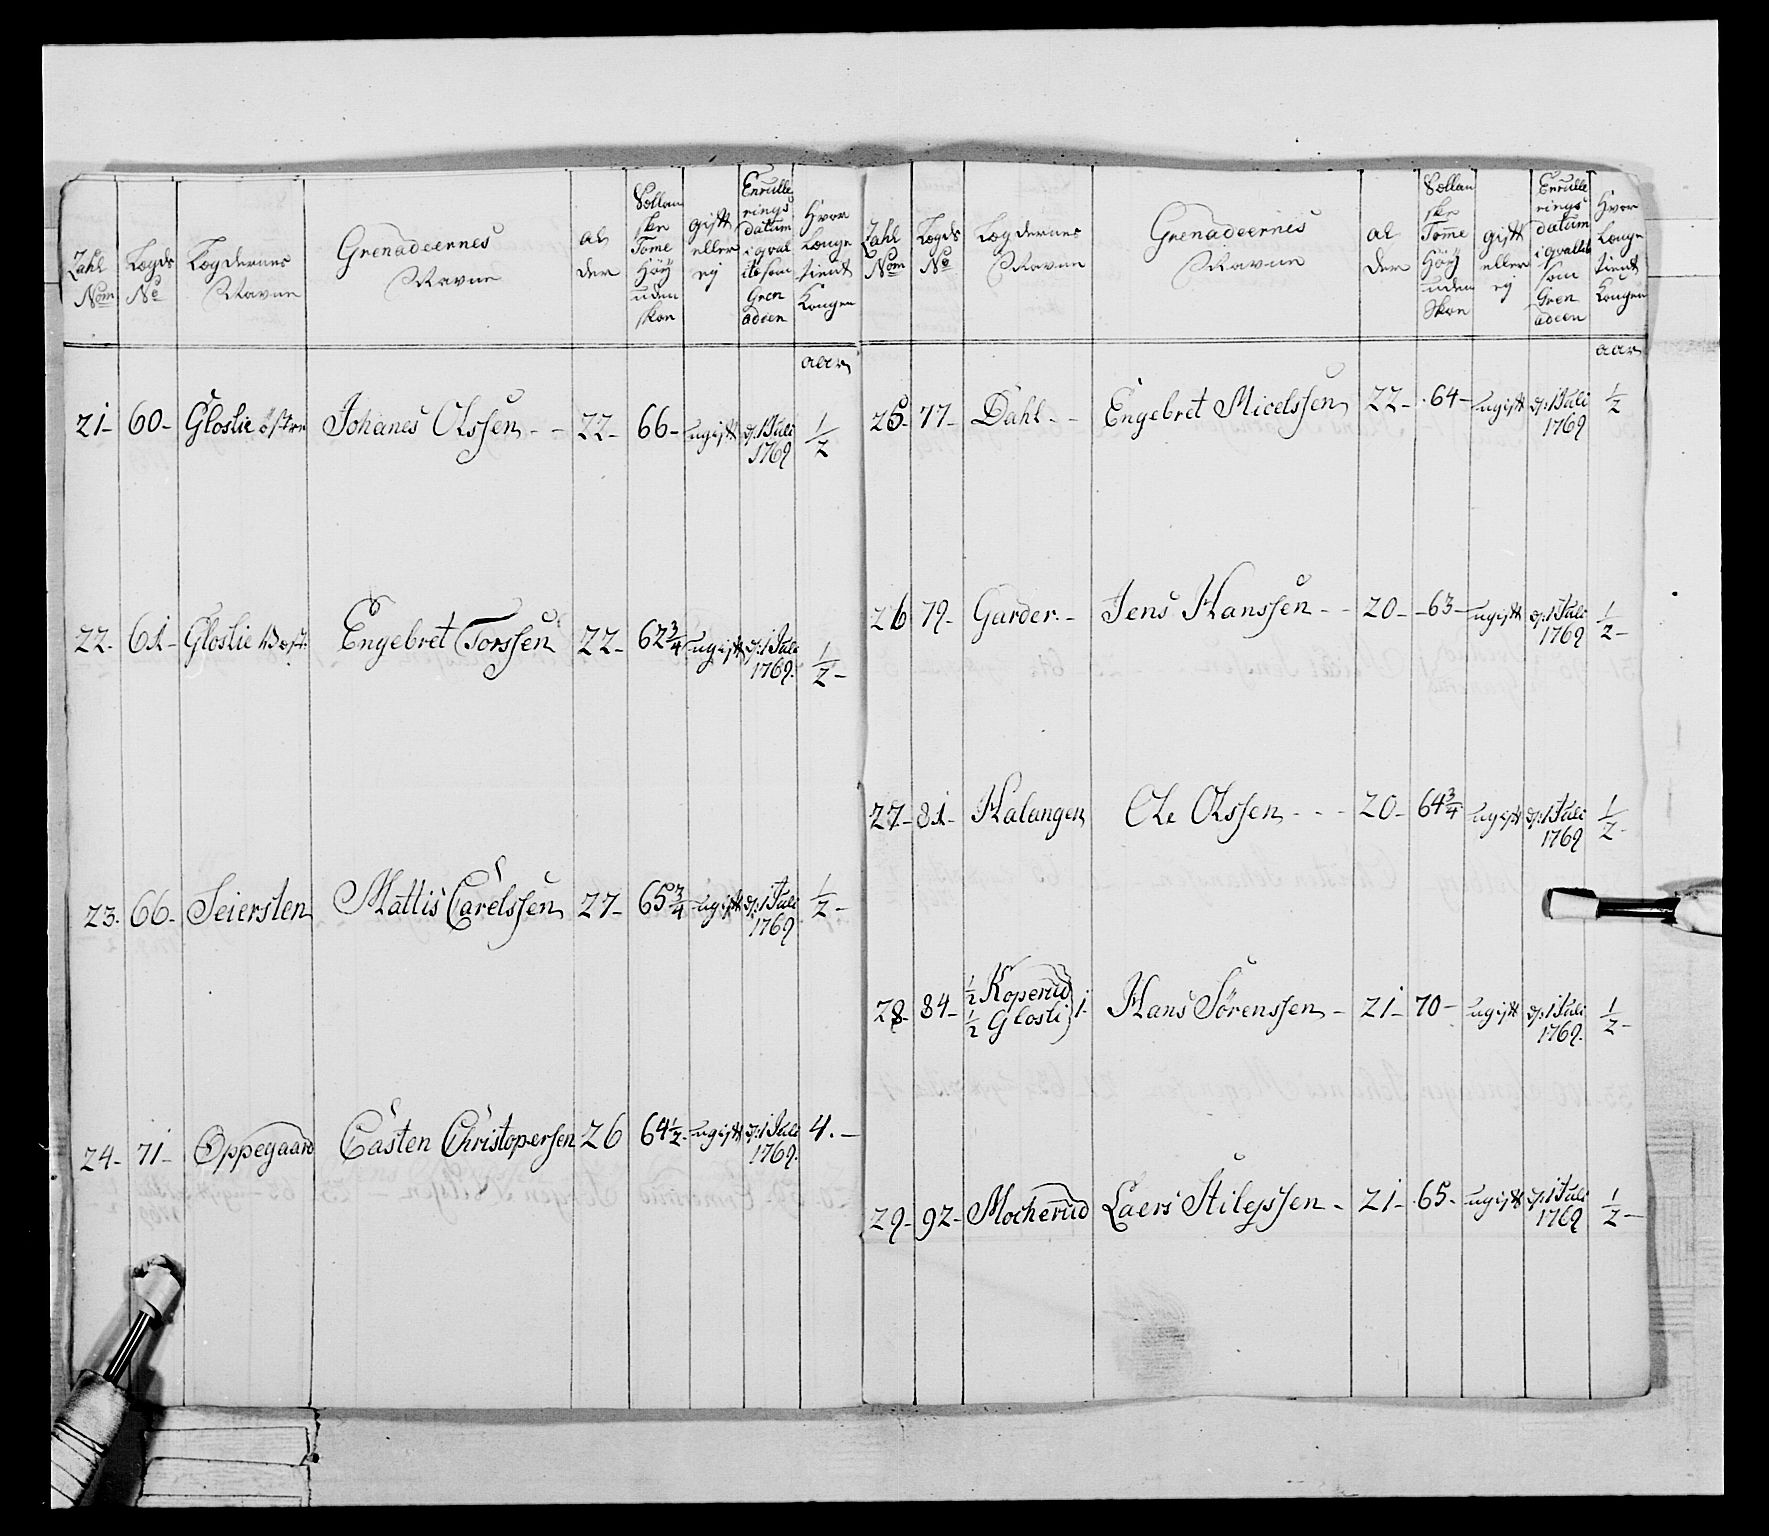 Zahl Nom
Lægds No
Lægdernes Navne
Grenadeernes Navne
al der
Sollan ske Tome Höÿ uden skoe
gift eller ej
Enrulle rings datum i qval ite som Gren adeer
Hvor Længe tient Kongen
aar
21- 60- Gloslie östre Johanes Olssen - - 22- 66- ugift d: 1 Juli 1769 1/2
22- 61- Gloslie Vest: Engebret Torssen 22- 62 3/4 ugift d: 1 Juli 1769. 1/2-
23. 66- Seiersten Mattis Carelssen 27- 65 3/4 ugift d: 1 Juli 1769 1/2-
24- 71- Oppegaard Casten Christopersen 26 64 1/2- ugift d: 1 Juli 1769. 4.-
Zahl Nom
Lægds No
Lægdernes Navne
Grenadeernes Navne
al der
Sollan ske Tome Höÿ uden Skoe
gift eller ej
Enrulle rings datum i qvalite som Gren adeer
Hvor Længe tient Kongen
aar
25- 77- Dahl - - Engebret Micelssen 22- 64- ugift d: 1 Juli 1769 1/2
26 79- Garder.- Jens Hanssen - - 20- 63- ugift d: 1 Juli 1769 1/2-
27- 81- Halangen Ole Olssen - - - 20- 64 3/4 ugift d: 1 Juli 1769 1/2-
28- 84- 1/2 Koperud 1/2 Glosli } 1. Hans Sörenssen - 21- 70- ugift d: 1 Juli 1769. 1/2-
29- 92- Mocherud Laers Stilejssen - 21- 65- ugift d: 1 Juli 1769 1/2-